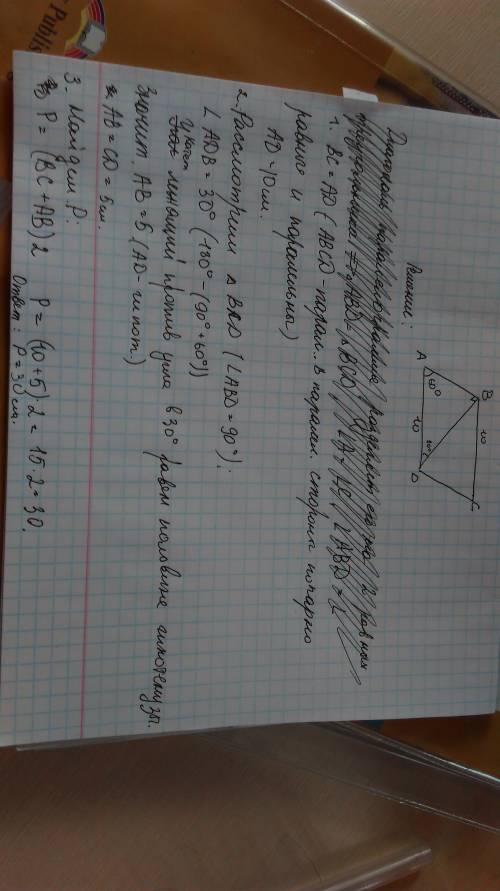 Publis
Решение:
Диагональ параллелограмма разделяет его на 2 равных
треугольника
A
B
C
D
60°
10
10
30°
1. BC = AD (ABCD - парал.. в паралл. стороны попарно
равны и параллельны)
AD = 10 см.
2. Рассмотрим △ BAD (∠ABD = 90°):
∠ADB = 30° (180° - (90° + 60°))
Катет лежащий против угла в 30° равен половине гипотенузы.
Значит AB = 5 (AD - гипот.)
AB = CD = 5 см.
3. Найдем P:
P = (BC + AB) 2 P = (10 + 5) · 2 = 15 · 2 = 30.
Ответ: P = 30 см.